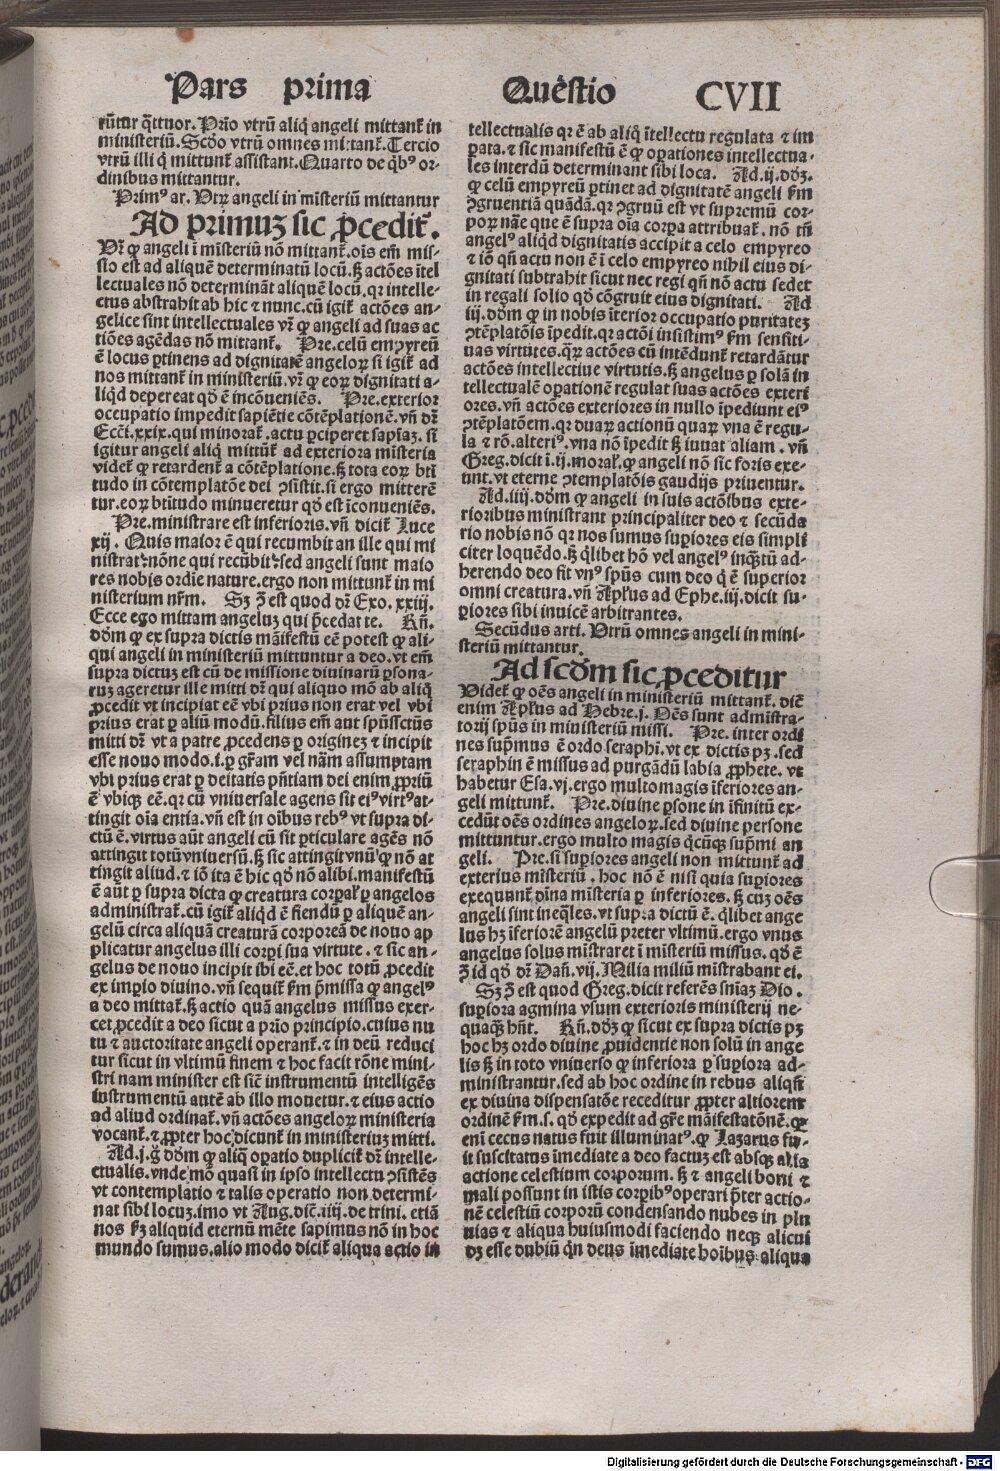 Pars prima Questio CVII
rũtur q̃ttuor. Prio vtrũ aliq̃ angeli mittant᷑ in
ministeriũ. Scđo vtrũ omnes mittant᷑. Tercio
vtrũ illi q̃ mittunt᷑ assistant. Quarto de q̃bꝰ or-
dinibus mittantur.
Primꝰ ar. Vtꝝ angeli in mĩsteriũ mittantur
Ad primuꝫ sic ꝓcedit᷑.
Vr̃ ꝙ angeli ĩ mĩsteriũ nõ mittant᷑. oĩs em̃ mis-
sio est ad aliquẽ determinatũ locũ. ꝫ actões ĩtel
lectuales nõ determinãt aliquẽ locũ. qꝛ intelle-
ctus abstrahit ab hic ⁊ nunc. cũ igit᷑ actões an-
gelice sint intellectuales vr̃ ꝙ angeli ad suas ac
tiões agẽdas nõ mittant᷑. Pre. celũ empyreũ
ẽ locus ꝑtinens ad dignitatẽ angeloꝝ si igit᷑ ad
nos mittant᷑ in ministeriũ. vr̃ ꝙ eoꝝ dignitati a-
liq̃d depereat qđ ẽ incõueniẽs. Pre. exterior
occupatio impedit sapiẽtie cõtẽplationẽ. vñ dr̃
Ecci. xxix. qui minorat᷑. actu ꝑciperet sapĩaꝫ. si
igitur angeli aliq̃ mittũt᷑ ad exteriora mĩsteria
videt᷑ ꝙ retardent᷑ a cõtẽplatione. ꝫ tota eoꝝ btĩ
tudo in cõtemplatõe dei ꝯsistit. si ergo mitterẽ
tur. eoꝝ btĩtudo minueretur qđ est ĩcõueniẽs.
Pre. ministrare est inferioris. vñ dicit᷑ Luce
xij. Quis maior ẽ qui recumbit an ille qui mi
nistrat: nõne qui recũbit: sed angeli sunt maio
res nobis ordĩe nature. ergo non mittunt᷑ in mi
nisterium nr̃m. Sꝫ ꝯ̃ est quod dr̃ Exo. xxiij.
Ecce ego mittam angeluꝫ qui p̃cedat te. Rñ.
đõm ꝙ ex supra dictis mãifestũ eẽ potest ꝙ ali-
qui angeli in ministeriũ mittuntur a deo. vt em̃
supra dictuꝫ est cũ de missione diuinarũ ꝑsona-
ruꝫ ageretur ille mitti dr̃ qui aliquo mõ ab aliq̃
ꝓcedit vt incipiat eẽ vbi prius non erat vel vbi
prius erat ꝑ aliũ modũ. filius em̃ aut spũssctũs
mitti dr̃ vt a patre ꝓcedens ꝑ origineꝫ ⁊ incipit
esse nouo modo. i. ꝑ gr̃am vel nãm assumptam
vbi prius erat ꝑ deitatis pñtiam dei enim ꝓpriũ
ẽ vbiqꝫ eẽ. qꝛ cũ vniuersale agens sit eiꝰ virtꝰ at-
tingit oĩa entia. vñ est in oĩbus rebꝰ vt supra di-
ctũ ẽ. virtus aũt angeli cũ sit ꝑticulare agẽs nõ
attingit totũ vniuersũ. ꝫ sic attingit vnũ ꝙ nõ at
tingit aliud. ⁊ iõ ita ẽ hic qđ nõ alibi. manifestũ
ẽ aũt ꝑ supra dicta ꝙ creatura corꝑal᷑ ꝑ angelos
administrat᷑. cũ igit᷑ aliq̃d ẽ fiendũ ꝑ aliquẽ an-
gelũ circa aliquã creaturã corporeã de nouo ap
plicatur angelus illi corꝑi sua virtute. ⁊ sic an-
gelus de nouo incipit ibi eẽ. et hoc totũ ꝓcedit
ex imꝑio diuino. vñ sequit᷑ ẜm p̃missa ꝙ angelꝰ
a deo mittat᷑. ꝫ actio quã angelus missus exer-
cet ꝓcedit a deo sicut a prĩo principio. cuius nu
tu ⁊ auctoritate angeli operant᷑. ⁊ in deũ reduci
tur sicut in vltimũ finem ⁊ hoc facit rõne mini-
stri nam minister est sicut instrumentũ intelligẽs
instrumentũ autẽ ab illo mouetur. ⁊ eius actio
ad aliud ordinat᷑. vñ actões angeloꝝ ministeria
vocant᷑. ⁊ ꝓpter hoc dicunt᷑ in ministeriuꝫ mitti.
Ad. j. g̊ đõm ꝙ aliq̃ oꝑatio duplicit᷑ dr̃ intelle-
ctualis. vnde mõ quasi in ipso intellectu ꝯsistẽs
vt contemplatio ⁊ talis operatio non determi-
nat sibi locuꝫ. imo vt Aug. dic̃. iiij. de trini. etiã
nos ẜꝫ aliquid eternũ mẽte sapimus nõ in hoc
mundo sumus. alio modo dicit᷑ aliqua actio in
tellectualis qꝛ ẽ ab aliq̃ ĩtellectu regulata ⁊ im
ꝑata. ⁊ sic manifestũ ẽ ꝙ oꝑationes intellectua-
les interdũ determinant sibi loca. Ad. ij. đõꝫ.
ꝙ celũ empyreũ ꝑtinet ad dignitatẽ angeli ẜm
ꝯgruentiã quãdã. qꝛ ꝯgruũ est vt supremũ cor-
poꝝ nãe que ẽ supra oĩa corpa attribuat᷑. nõ tñ
angelꝰ aliq̃d dignitatis accipit a celo empyreo
⁊ iõ qñ actu non ẽ ĩ celo empyreo nihil eius di-
gnitati subtrahit sicut nec regi qñ nõ actu sedet
in regali solio qđ cõgruit eius dignitati. Ad
iij. đõm ꝙ in nobis ĩterior occupatio puritateꝫ
ꝯtẽplatõis ĩpedit. qꝛ actõi insistimꝰ ẜm sensiti-
uas virtutes. qꝝ actões cũ intẽdunt᷑ retardãtur
actões intellectiue virtutis. ꝫ angelus ꝑ solã in
tellectualẽ oꝑationẽ regulat suas actões exteri
ores. vñ actões exteriores in nullo ĩpediunt eiꝰ
ꝯtẽplatõem. qꝛ duaꝝ actionũ quaꝝ vna ẽ regu-
la ⁊ rõ. alteriꝰ. vna nõ ĩpedit ꝫ iuuat aliam. vñ
Greg. dicit ĩ. ij. moral᷑. ꝙ angeli nõ sic foris exe-
unt. vt eterne ꝯtemplatõis gaudijs priuentur.
Ad. iiij. đõm ꝙ angeli in suis actõibus exte-
rioribus ministrant principaliter deo ⁊ secũda
rio nobis nõ qꝛ nos sumus suꝑiores eis simpli
citer loquẽdo. ꝫ q̃libet hõ vel angelꝰ inq̃ꝫtũ ad-
herendo deo fit vnꝰ spũs cum deo q̃ ẽ superior
omni creatura. vñ Apłus ad Ephe. iij. dicit su-
ꝑiores sibi inuicẽ arbitrantes.
Secũdus arti. Vtrũ omnes angeli in mini-
steriũ mittantur.
Ad scđm sic ꝓceditur
Videt᷑ ꝙ oẽs angeli in ministeriũ mittant᷑. dic̃
enim Apłus ad Hebre. j. Oẽs sunt admĩstra-
torij spũs in ministeriũ missi. Pre. inter ordi
nes sup̃mus ẽ ordo seraphĩ. vt ex dictis pꝫ. sed
seraphin ẽ missus ad purgãdũ labia ꝓphete. vt
habetur Esa. vj. ergo multomagis ĩferiores an-
geli mittunt᷑. Pre. diuine ꝑsone in ĩfinitũ ex-
cedũt oẽs ordines angeloꝝ. sed diuine persone
mittuntur. ergo multo magis q̃cũqꝫ sup̃mi an
geli. Pre. si suꝑiores angeli non mittunt᷑ ad
exterius mĩsteriũ. hoc nõ ẽ nisi quia suꝑiores
exequunt᷑ dĩna mĩsteria ꝑ inferiores. ꝫ cuꝫ oẽs
angeli sint ineq̃les. vt supra dictũ ẽ. q̃libet ange
lus hꝫ ĩferiorẽ angelũ preter vltimũ. ergo vnus
angelus solus mĩstraret ĩ mĩsteriũ missus. qđ ẽ
ꝯ̃ id qđ dr̃ Dañ. vij. Milia miliũ mĩstrabant ei.
Sꝫ ꝯ̃ est quod Greg. dicit referẽs sniãꝫ Dio.
suꝑiora agmina vsum exterioris ministerij ne-
quaq̃ꝫ hñt. Rñ. đõꝫ ꝙ sicut ex supra dictis pꝫ
hoc hꝫ ordo diuine ꝓuidentie non solũ in ange
lis ꝫ in toto vniuerso ꝙ inferiora ꝑ suꝑiora ad-
ministrantur. sed ab hoc ordine in rebus aliqñ
ex diuina dispensatõe receditur ꝓpter altiorem
ordinẽ ẜm. s. qđ expedit ad gr̃e mãifestatõnẽ. ꝙ
enĩ cecus natus fuit illuminatꝰ. ꝙ Lazarus fu-
it suscitatus ĩmediate a deo factuꝫ est absqꝫ alia
actione celestium corporum. ꝫ ⁊ angeli boni ⁊
mali possunt in istis corꝑibꝰ operari p̃ter actio-
nẽ celestiũ corporũ condensando nubes in plu
uias ⁊ aliqua huiusmodi faciendo neqꝫ alicui
dꝫ esse dubiũ q̃n deus ĩmediate hoĩbus aliqua
Digitalisierung gefördert durch die Deutsche Forschungsgemeinschaft - DFG